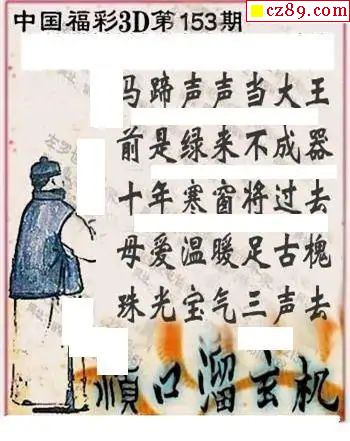 cz89.com
中国福彩3D第153期
马蹄声声当大王
前是绿来不成器
十年寒窗将过去
母爱温暖足古槐
珠光宝气三声去
顺口溜玄机